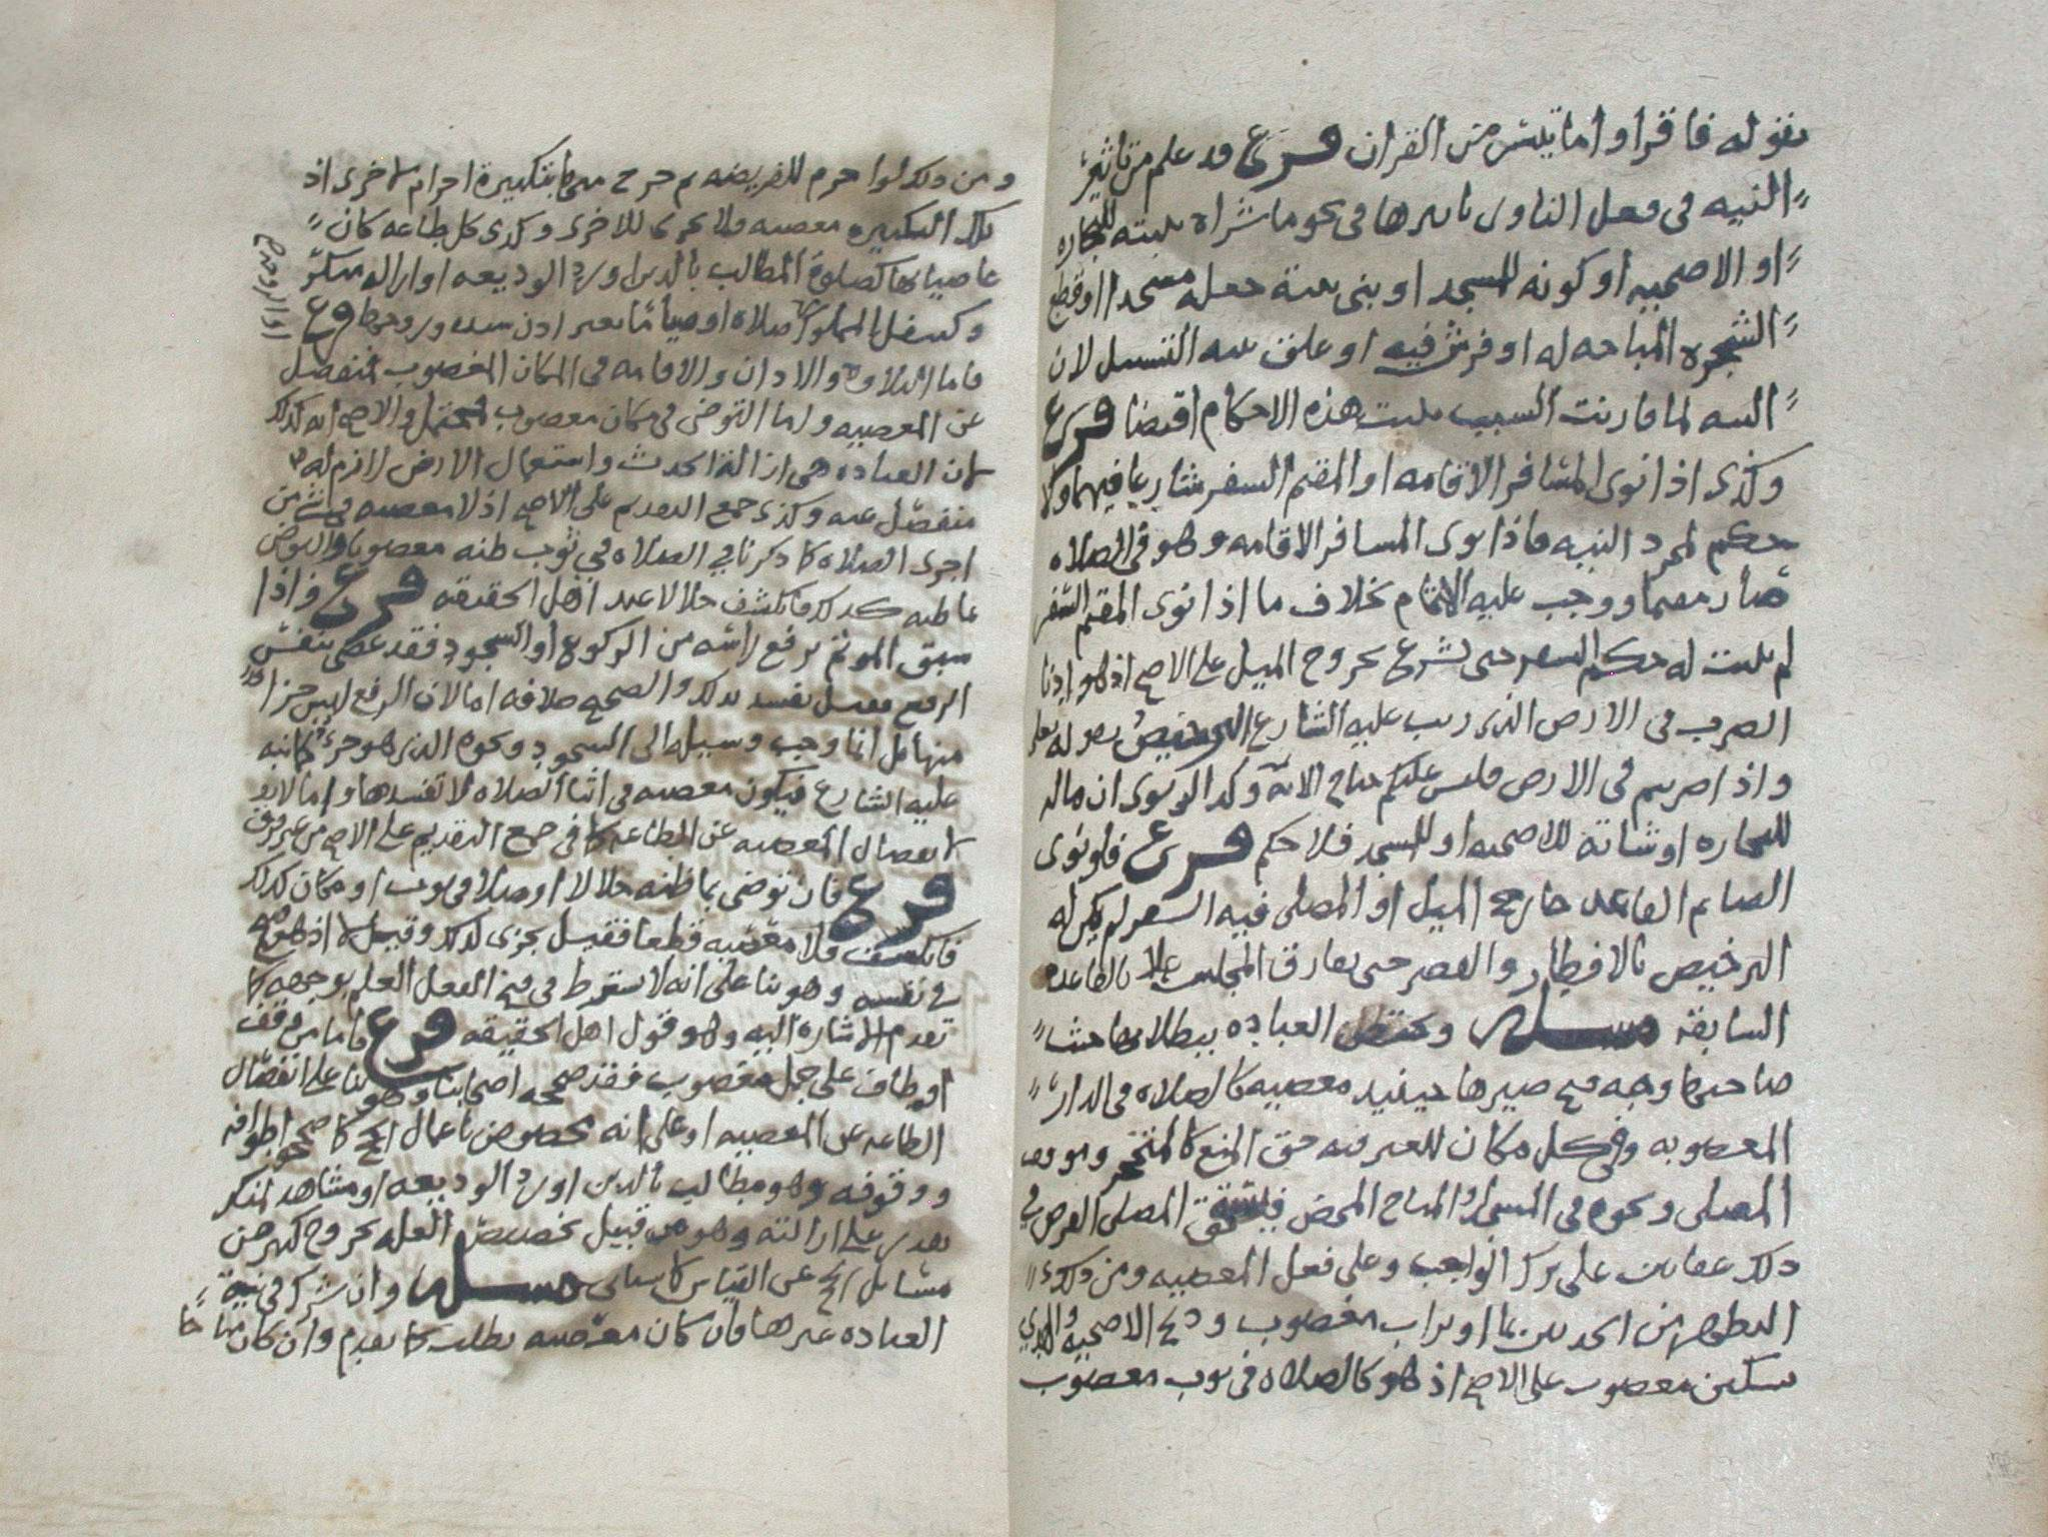 بقوله فاقراوا ما تيسر من القران فرع قد علم من تاثير
النيه في فعل الناوي تاثيرها في نحو ما شراه بنيته للتجاره
او الاضحيه او كونه للمسجد او بنى بنية جعله مسجدا او قطع
الشجره المباحه له او فرش فيه او علق بنيه التسبيل لان
النيه لما قارنت السبب ثبتت هذه الاحكام اقتضا فرع
وكذى اذا نوى المسافر الاقامه او المقيم السفر شارعا فيهما ولا
حكم لمجرد النيه فاذا نوى المسافر الاقامه وهو في الصلاه
صار مقيما ووجب عليه الاتمام بخلاف ما اذا نوى المقيم السفر
لم يثبت له حكم السفر حتى يشرع بخروج الميل على الاصح اذ هو
الضرب في الارض الذي رتب عليه الشارع الترخيص بقوله تعلى
واذا ضربتم في الارض فليس عليكم جناح الايه وكذا لو نوى ان ماله
للتجاره او شاته للاضحيه او للمسجد فلا حكم فرع فلو نوى
الصايم القاعد خارج الميل او المصلي فيه السفر لم يكن له
الترخيص بالافطار والقصر حتى يفارق المجلس عملا بالقاعده
السابقه مسله العباده ببطلانها حيث
صاحبها وجه قبح صيرها حينيذ معصيه كالصلاه في الدار
المغصوبه وفي كل مكان للغير فيه حق المنع كالمتحجر وموقف
المصلي ونحوه في المسجد او المباح المحض فيستحق المصلي الفرض في
ذلك عقابين على ترك الواجب وعلى فعل المعصيه ومن ذلك
التطهر من الحدثين بما او تراب مغصوب وذبح الاضحيه والهدي
بسكين مغصوب على الاصح اذ هو كالصلاه في ثوب مغصوب
ومن ذلك لو احرم للفريضه ثم خرج منها بتكبيرة احرام لاخرى اذ
تلك التكبيره معصيه ولا يجزي للاخرى وكذى كل طاعه كان
عاصيا بها كصلوة المطالب بالدين او رد الوديعه او ازاله منكر
وكتنفل المملوك صلاه او صياما بغير اذن سيده وزوجها فرع
او الزوجه
فاما التلاوه والاذان والاقامه في المكان المغصوب فمنفصل
عن المعصيه واما التوضي في مكان مغصوب فمحتمل والاصح انه كذلك
لان العباده هي ازالة الحدث واستعمال الارض لازم له
منفصل عنه وكذى جمع التقديم على الاصح اذ لا معصيه في شي من
اجزى الصلاه كما ذكرنا في الصلاه في ثوب ظنه مغصوبا
ما ظنه كذلك فانكشف حلالا عند اهل الحقيقه فرع واذا
سبق الموتم برفع راسه من الركوع او السجود فقد عصى بنفس
الرفع فقيل تفسد بذلك والصحيح خلافه اما لان الرفع ليس جزا
منها بل انما وجب وسيلة الى السجود ونحوه الذي هو جزء كما نبه
عليه الشارع فيكون معصيه في اثنا الصلاه لا تفسدها واما
لانفصال المعصيه عن الطاعه كما في جمع التقديم على الاصح من غير فرق
فرع فان توضى بما ظنه حلالا او صلا في ثوب او مكان كذلك
فانكشف فلا معصيه قطعا فقيل يجزى لذلك وقيل لا اذ هو قبيح
في نفسه وهو بنا على انه لا يشترط في قبح الفعل العلم بوجهه كما
تقدم الاشاره اليه وهو قول اهل الحقيقه فرع فاما من وقف
او طاف على جمل مغصوب فقد صححه اصحابنا وهو بنا على انفصال
الطاعه عن المعصيه او على انه مخصوص باعمال الحج كما صححوا طوافه
ووقوفه وهو مطالب بالدين او رد الوديعه او مشاهد لمنكر
يقدر على ازالته وهو من قبيل تخصيص العله بخروج كثير من
مسائل الحج عن القياس كما سياتي مسله وان شرك في نية
العباده غيرها فان كان معصيه بطلت كما تقدم وان كان مباحا